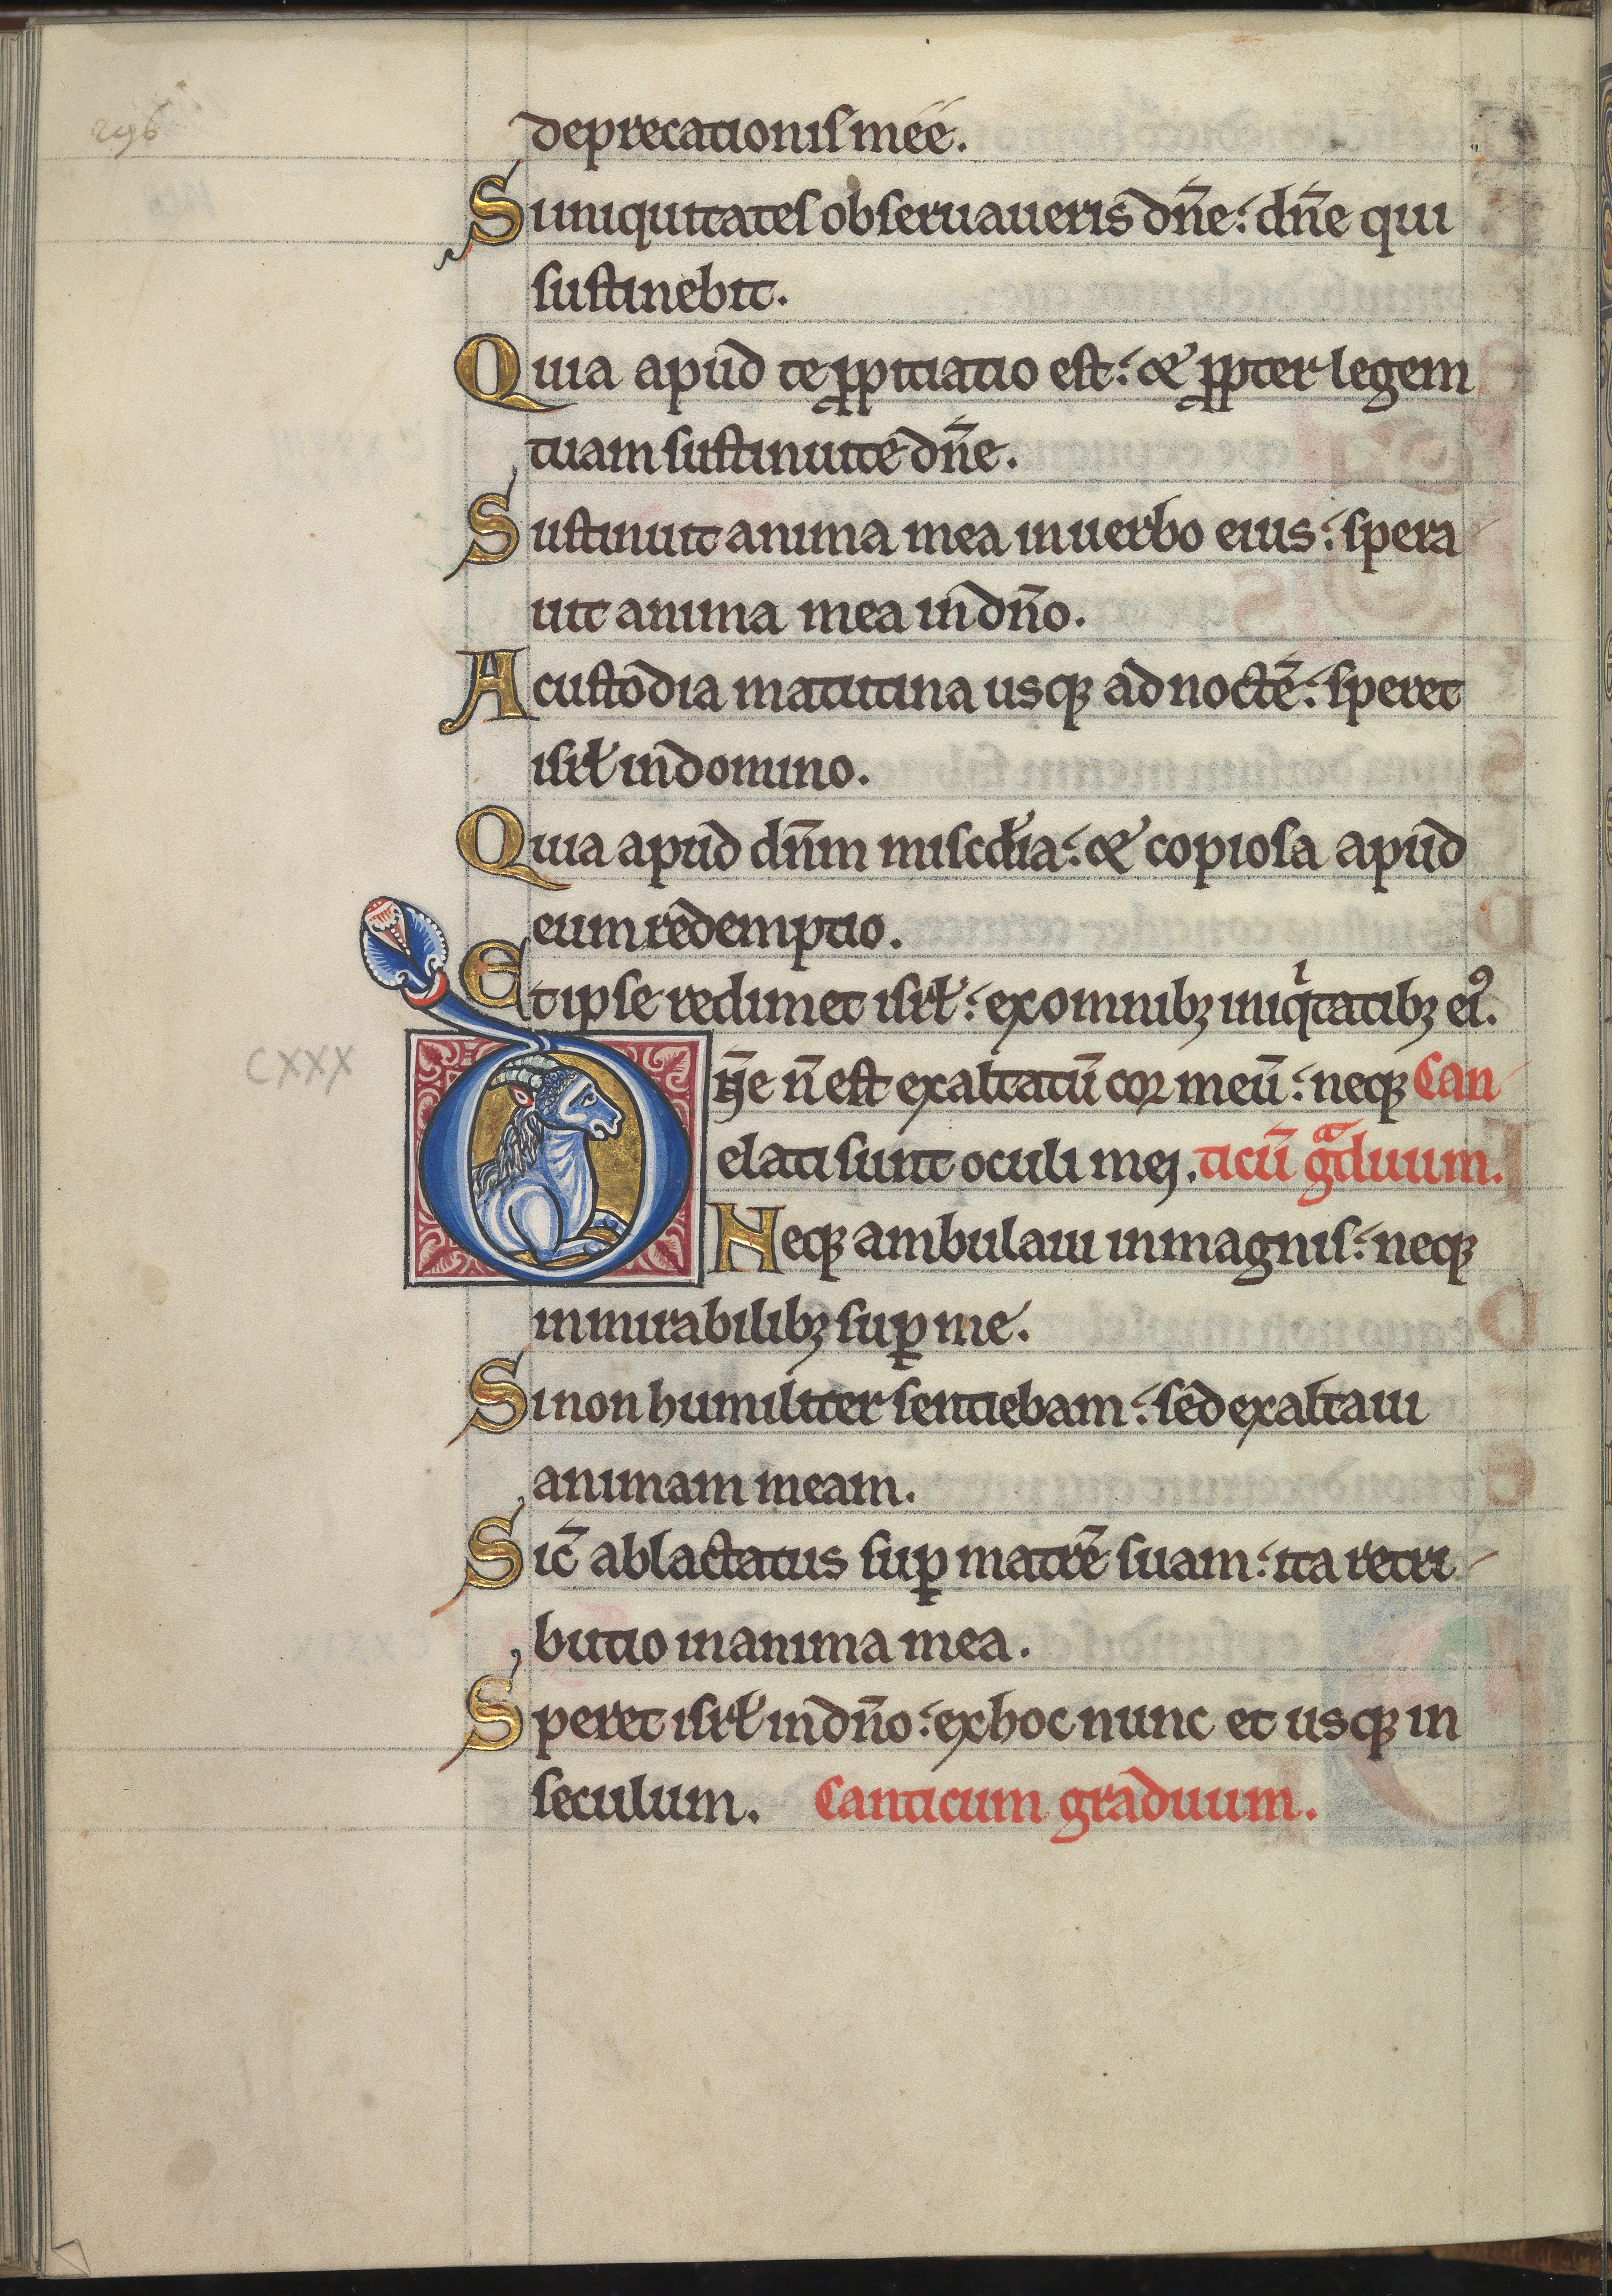 296
deprecationis meę́.
Si iniquitates obseruaueris dn̄e: dn̄e qui
sustinebit.
Quia apud te ꝓpitiatio est: & ꝓpter legem
tuam sustinui te dn̄e.
Sustinuit anima mea in uerbo eius: spera
uit anima mea in dn̄o.
A custodia matutina usq; ad noctē: speret
isrl̄ in domino.
Quia apud dn̄m misc̄dia: & copiosa apud
eum redemptio.
Et ipse redimet isrl̄: ex omnibꝫ iniqͥtatibꝫ eiꝰ.
CXXX
Dn̄e n̄ est exaltatū cor meū: neq; Can
elati sunt oculi mei. ticū gͣduum.
Neq; ambulaui in magnis: neq;
in mirabilibꝫ suꝑ me.
Si non humiliter sentiebam: sed exaltaui
animam meam.
Sic̄ ablactatus suꝑ matrē suam: ita retri
butio in anima mea.
Speret isrl̄ in dn̄o: ex hoc nunc et usq; in
seculum. Canticum graduum.